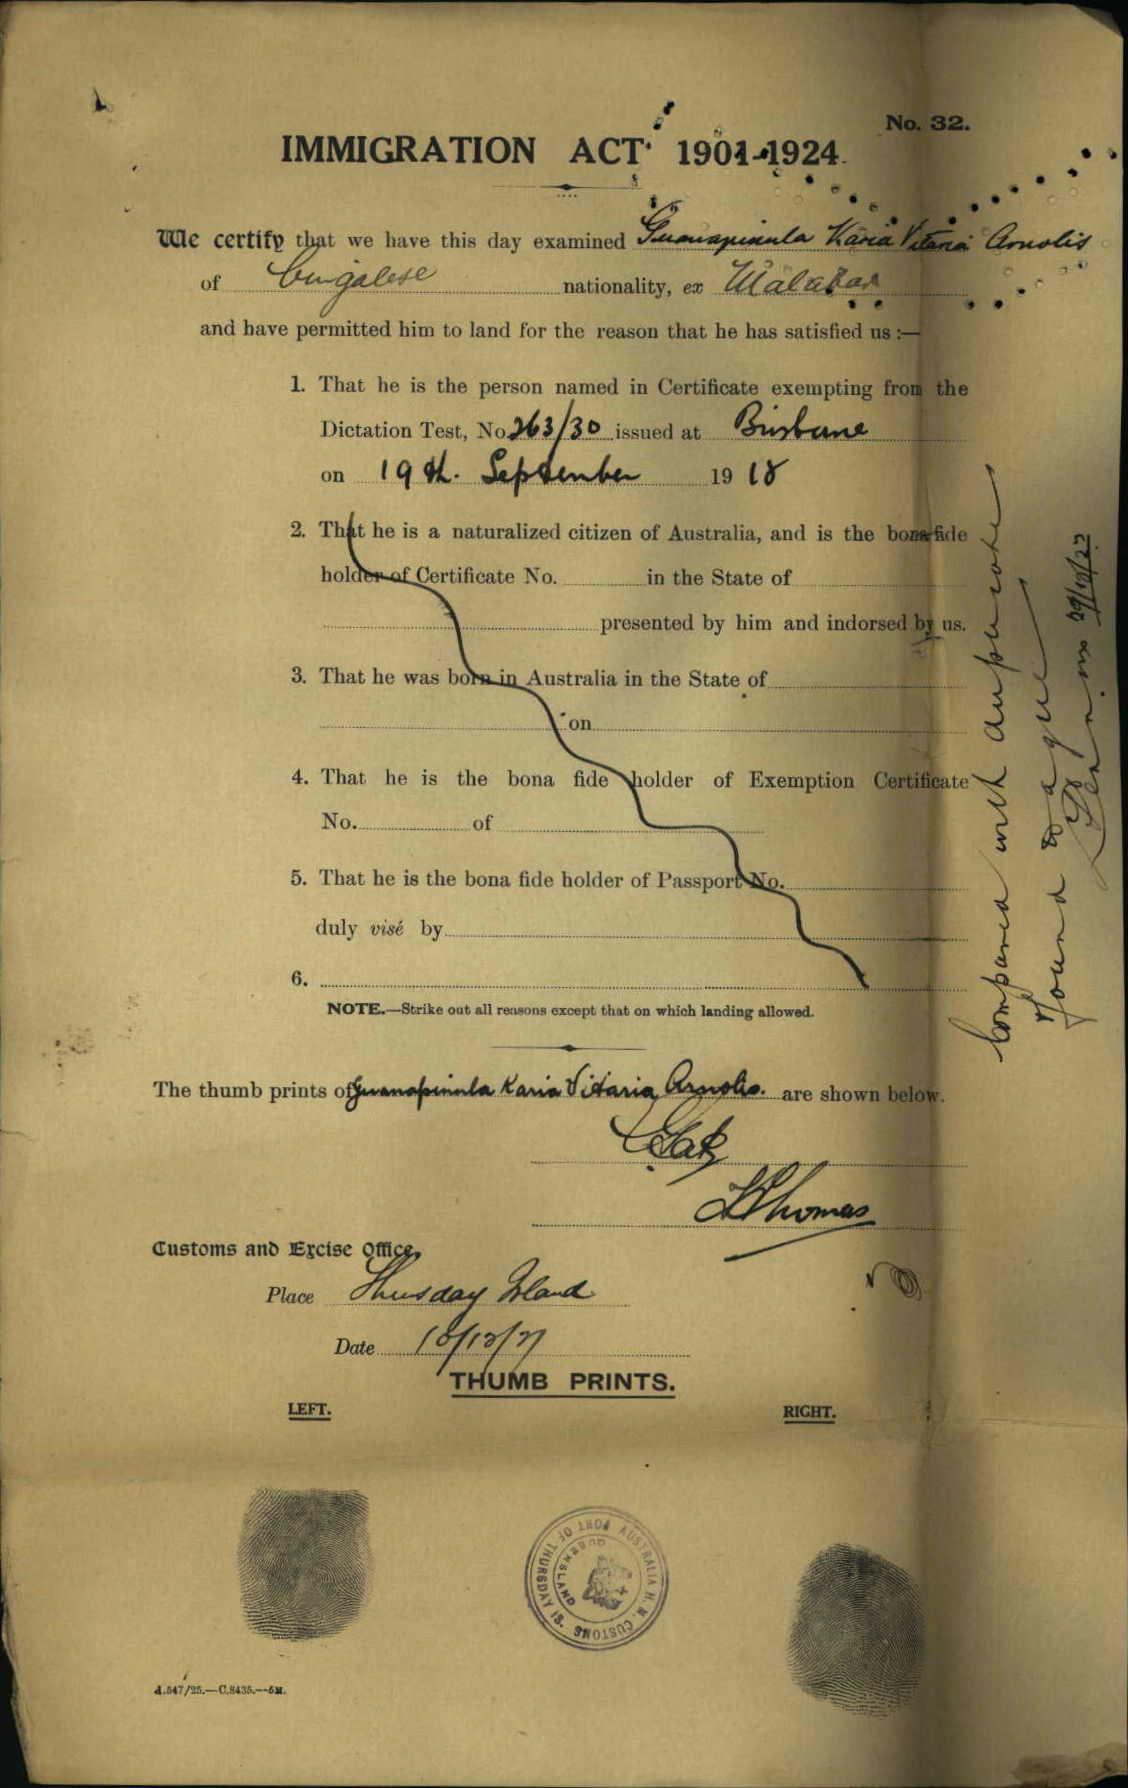 No. 32.
IMMIGRATION ACT 1901-1924.
We certify that we have this day examined Guanapinula Karia Vitaria Arnolis
of Cingalese nationality, ex Malabar
and have permitted him to land for the reason that he has satisfied us :—
1. That he is the person named in Certificate exempting from the
Dictation Test, No. 263/30 issued at Brisbane
on 19th. September 19 18
2. That he is a naturalized citizen of Australia, and is the bona fide
holder of Certificate No. in the State of
presented by him and indorsed by us.
3. That he was born in Australia in the State of
on
4. That he is the bona fide holder of Exemption Certificate
No. of
5. That he is the bona fide holder of Passport No.
duly visé by
6.
NOTE.—Strike out all reasons except that on which landing allowed.
The thumb prints of Guanapinula Karia Vitaria Arnolis. are shown below.
Thomas
Customs and Excise Office,
Place Thursday Island
Date
THUMB PRINTS.
LEFT. RIGHT.
AUSTRALIA H. M. CUSTOMS PORT OF THURSDAY IS.
QUEENSLAND
A.547/25.—C.8435.—5M.
Compared with duplicate
found to agree